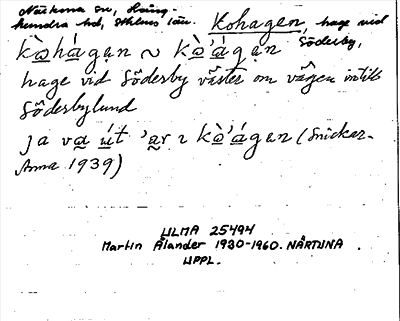 Närtuna sn, Lång-
hundra hd, Sthlms län. Kohagen, hage vid
Söderby,
kò̱há̱gen ~ kò̱'á̱gen
hage vid Söderby väster om vägen intill
Söderbylund
ja va̱ ú̱t 'a̱r ı kò̱'á̱gen (Snickar-
Anna 1939)
ULMA 25494
Martin Ålander 1930-1960. NÄRTUNA.
UPPL.